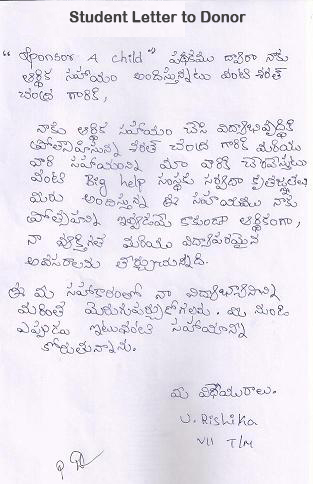 Student Letter to Donor
"Sponsor A child" పథకము ద్వారా నాకు
ఆర్థిక సహాయం అందిస్తున్నటు వంటి శరత్
చంద్ర గారికి,
నాకు ఆర్థిక సహాయం చేసి విద్యాభివృద్ధికి
శరత్ చంద్ర గారికి మరియు
వారి సహాయంని మా వారికి
వంటి Big help సంస్థకు సర్వదా కృతజ్ఞతలు
మీరు అందిస్తున్న ఈ సహాయము నాకు
ఇవ్వడమే కాకుండా ఆర్థికంగా,
నా వ్యక్తిగత మరియు విద్యాపరమైన
అవసరాలను
ఈ మీ సహకారంతో నా
మరింత మెరుగుపర్చుకోగలను. మీ నుండి
ఎప్పుడు ఇటువంటి సహాయాన్ని
కోరుతున్నాను.
మీ విధేయురాలు.
U. Rishika
VII T/M